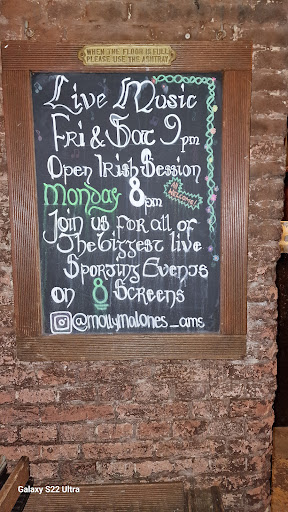 WHEN THE FLOOR IS FULL
PLEASE USE THE ASHTRAY
Live Music
Fri & Sat 9pm
Open Irish Session
Monday 8pm
Join us for all of
The biggest live
Sporting Events
on 8 Screens
@mollymalones_ams
Galaxy S22 Ultra